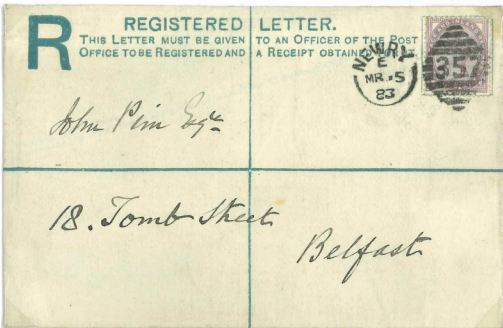 R
REGISTERED LETTER.
THIS LETTER MUST BE GIVEN TO AN OFFICER OF THE POST
OFFICE TO BE REGISTERED AND A RECEIPT OBTAINED
NEWRY
E
MR 5
83
357
John Pim Esqre
18. Tomb Street
Belfast